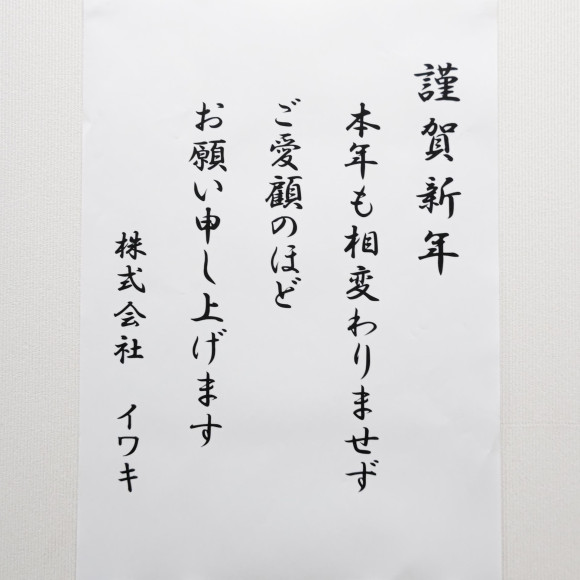 謹賀新年
本年も相変わりませず
ご愛顧のほど
お願い申し上げます
株式会社 イワキ